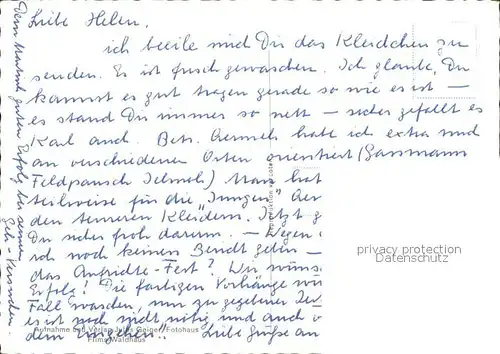 Liebe Helen,
ich beeile mich Dir das Kleidchen zu
senden. Es ist frisch gewaschen. Ich glaube, Du
kannst es gut tragen gerade so wie es ist –
es stand Dir immer so nett – sicher gefällt es
Karl auch. Betr. Aermeln habe ich extra mich
an verschiedenen Orten orientiert (Gassmann
Feldpausch Jelmoli) Man hat
teilweise für die "Jungen" Aer
den teureren Kleidern. Jetzt
Du sicher froh darum. – Wegen
ich noch keinen Bericht geben –
das Fest? Wir wüns
Erfolg! Die farbigen Vorhänge
Fall waschen, nur zu gegebener Zei
es ist noch nicht nötig und auch
dem Eingehen!! Liebe Grüße an
Dem guten Erfolg bei seinen
Aufnahme und Verlag Jules Geiger, Fotohaus
Flims-Waldhaus
privacy protection
Datenschutz